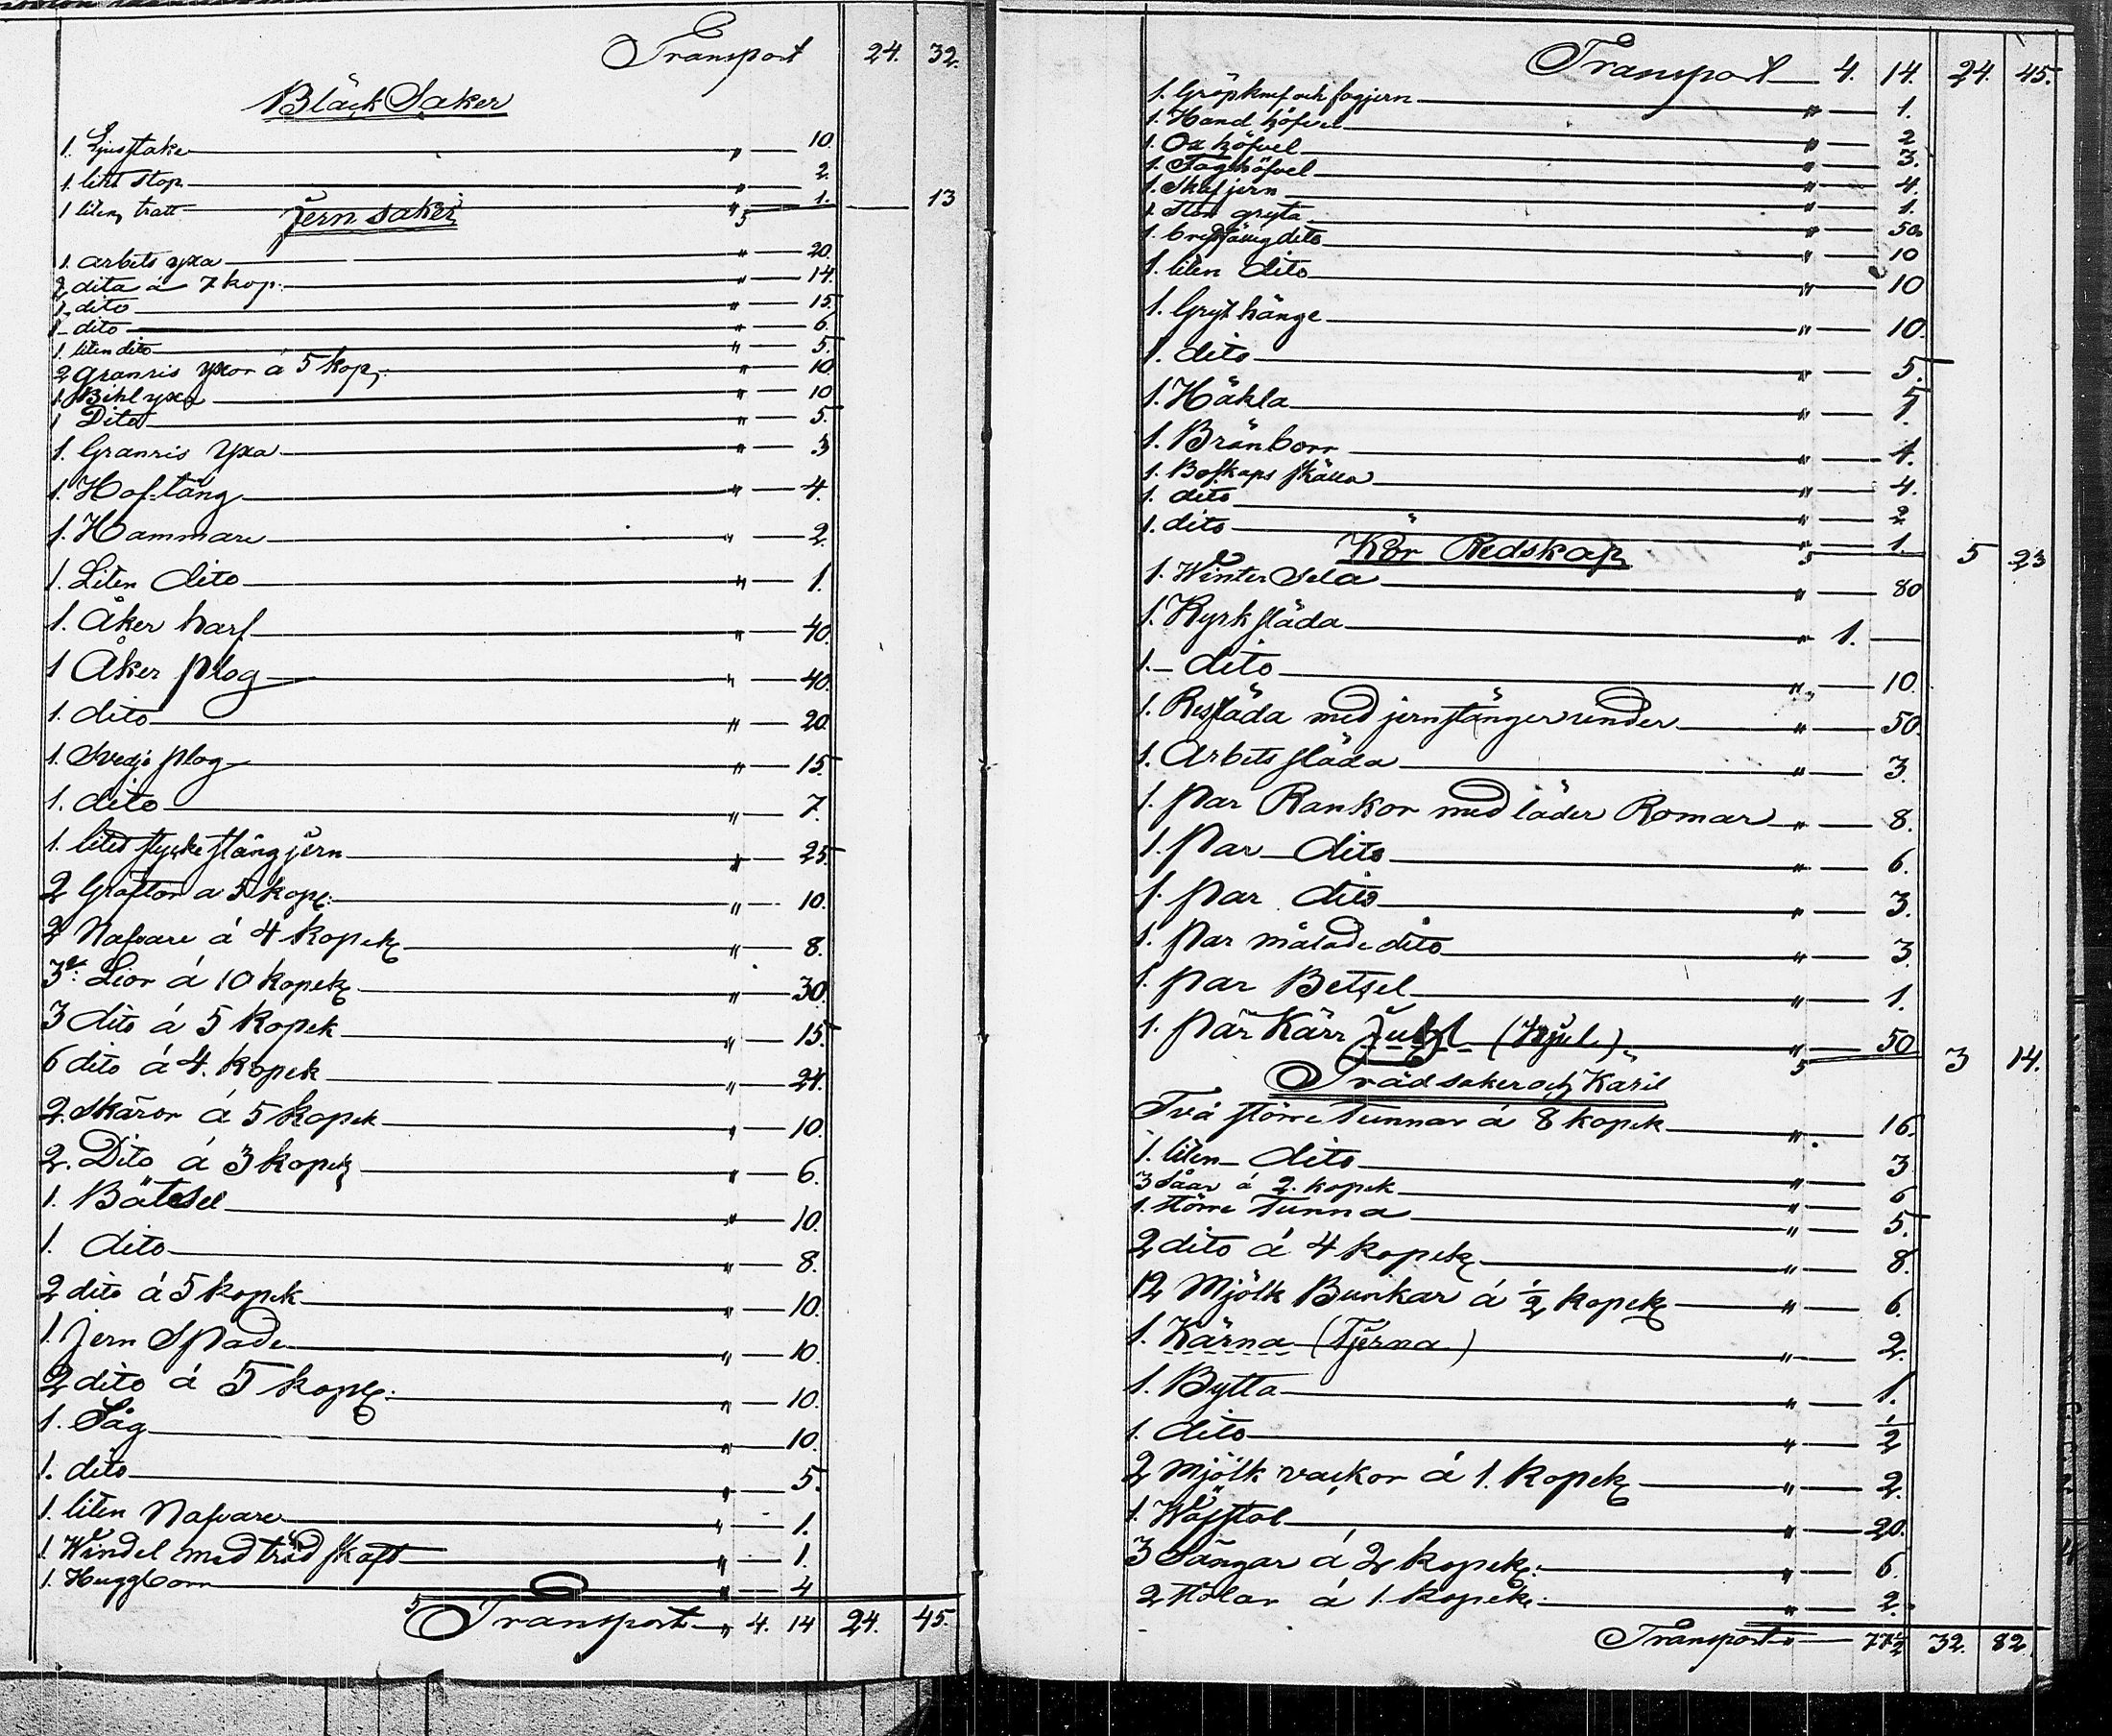 Transport 24. 32.
Bläck Saker
1. Ljusstake " — 10.
1. litet stop " — 2.
1 liten tratt " — 1. 13
Jern saker
1. arbets yxa " — 20.
2 dita á 7 kop: " — 14.
1. dito " — 15.
1 — dito " — 6.
1. liten dito " — 5.
2 granris yxor á 5 kop " — 10.
1. Bihl yxa " — 10
1 Dito " — 5.
1. Granris Yxa " — 3
1. Hof-tång " — 4.
1. Hammare " — 2.
1. Liten dito " — 1.
1. Åker harf " — 40.
1 Åker plog " — 40.
1. dito " — 20.
1. Svedje plog " — 15.
1. dito " — 7.
1. litet stycke stång jern " — 25.
2 Gräftor a 5 kop: " — 10.
2 Nafvare á 4 kopek " — 8.
3 Lior á 10 kopek " — 30.
3 dito á 5 kopek " — 15.
6 dito á 4. kopek " — 24.
2. Skäror á 5 kopek " — 10.
2. Dito á 3 kopek " — 6.
1. Bätsel " — 10.
1. dito " — 8.
2 dito á 5 kopek " — 10.
1. Jern Spade " — 10.
2 dito á 5 kopek: " — 10.
1. Såg " — 10.
1. dito " — 5.
1. liten Nafvare " — 1.
1 Windel med träd skaft " — 1.
1. Huggborr " — 4
Transport " 4. 14 24. 45.
Transport 4. 14. 24. 45.
1. och fogjern " — 1.
1. Hand höfvel " — 2
1. Ox höfvel " — 3.
1. Foghöfvel " — 4.
1. Skaf jern " — 1.
1. Stor gryta " — 50.
1. dito " — 10
1. liten dito " — 10
1. Gryt hänge " — 10.
1. dito " — 5.
1. Häkla " —
1. Brånborr " — 1.
1. Boskaps skälla " — 4.
1. dito " — 2
1. dito " — 1. 5 23
Kör Redskap
1. Winter Sela " — 80
1. Kyrk släda " 1. —
1. — dito " — 10.
1. Resläda med jernstänger under " — 50.
1. Arbets släda " — 3.
1. par Rankor med läder Romar " — 8.
1. Par dito " — 6.
1. par dito " — 3.
1. par målade dito " — 3.
1. par Betsel " — 1.
1. par Kärr Juhl (Hjul) " — 50 3 14.
Träd saker och Käril
Två större Tunnar á 8 kopek " — 16.
1. liten dito " — 3
3 Såar á 2. kopek " — 6
1. större Tunna " — 5.
2 dito á 4 kopek " — 8.
12 Mjölk Bunkar á ½ kopek " — 6.
1. Kärna (Tjerna) " — 2.
1. Bytta " — 1.
1. dito " — ½
2 mjölk vackor á 1. kopek " — 2.
1. Wäfstol " — 20.
3 Sängar á 2 kopek: " — 6.
2 Stolar á 1. kopek: " — 2.
Transport " — 77½ 32. 82.